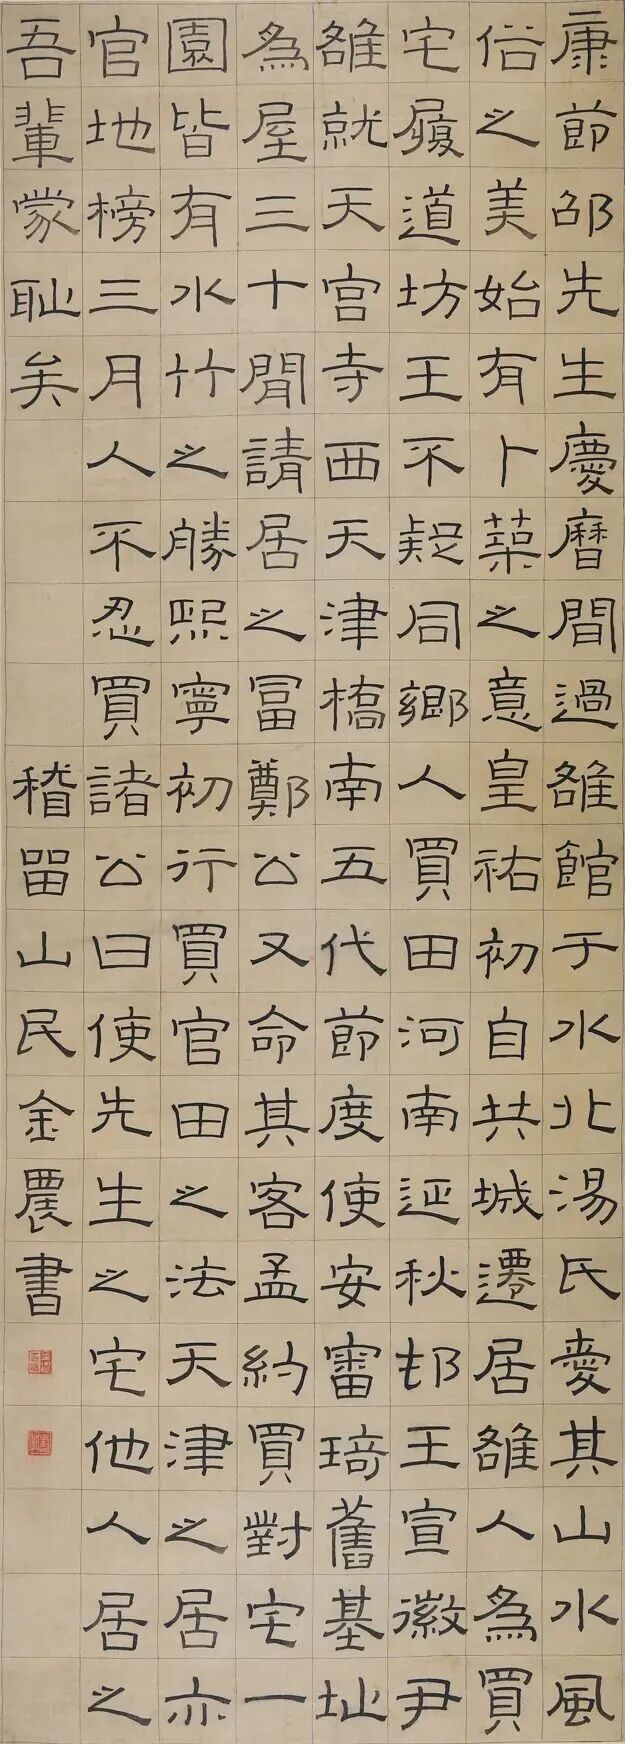 康節邵先生慶曆間過雒館于水北湯氏愛其山水風
俗之美始有卜築之意皇祐初自共城遷居雒人為買
宅履道坊王不疑同鄉人買田河南延秋邨王宣徽尹
雒就天宫寺西天津橋南五代節度使安審琦舊基址
為屋三十閒請居之冨鄭公又命其客孟約買對宅一
園皆有水竹之勝熙寧初行買官田之法天津之居亦
官地榜三月人不忍買諸公曰使先生之宅他人居之
吾輩蒙耻矣
稽留山民金農書